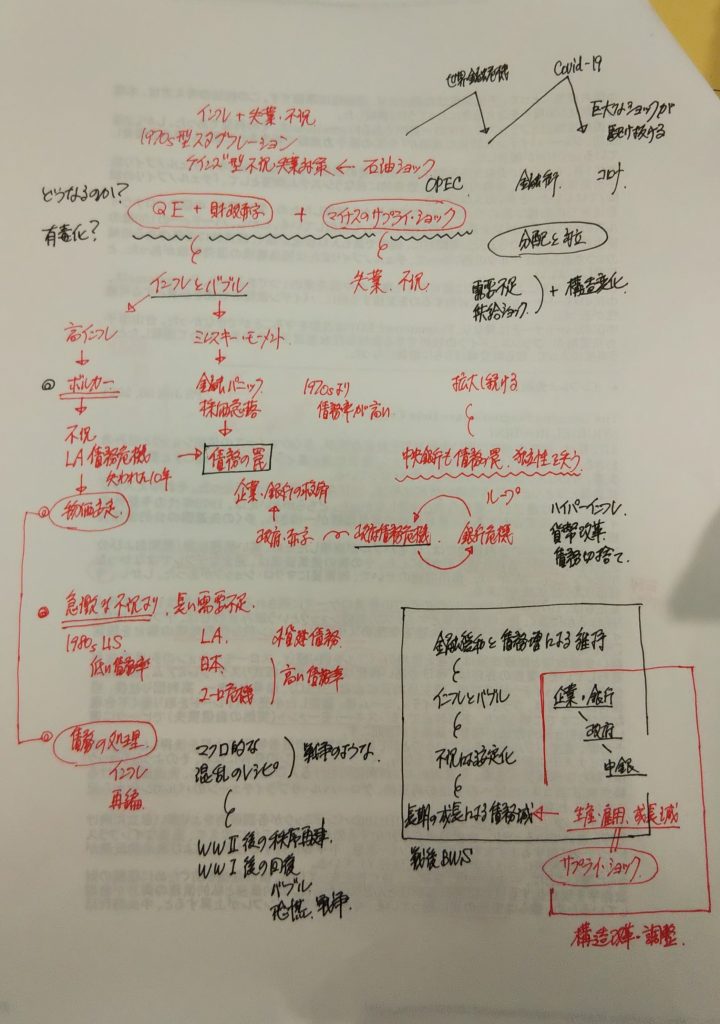 世界金融危機
Covid-19
巨大なショックが
駆け抜ける
インフレ + 失業・不況
1970s型スタグフレーション
ケインズ型不況・失業対策 ← 石油ショック
OPEC
金融術
コロナ
どうなるのか?
有毒化?
QE + 財政赤字 + マイナスのサプライ・ショック
分配と対立
インフレとバブル
失業、不況
需要不足
供給ショック
+ 構造変化
高インフレ
ミンスキー・モーメント
ボルカー
金融パニック
株価急落
1970sより
債務率が高い
拡大し続ける
不況
LA債務危機
失われた10年
債務の罠
中央銀行も債務の罠、独立性を失う
物価安定
企業・銀行の救済
政府・赤字
政府債務危機
ループ
銀行危機
ハイパーインフレ
貨幣改革
債務切捨て
急激な不況より、長い需要不足
1980s US
低い債務率
LA
日本
ユーロ危機
外貨建債務
高い債務率
金融緩和と債務増による維持
インフレとバブル
不況による安定化
長期の成長による債務減
戦後BWS
企業・銀行
政府
中銀
生産・雇用、成長減
サプライ・ショック
構造改革・調整
債務の処理
インフレ
再編
マクロ的な
混乱のレシピ
戦争のような
WWⅡ後の秩序再建
WWⅠ後の回復
バブル
恐慌、戦争